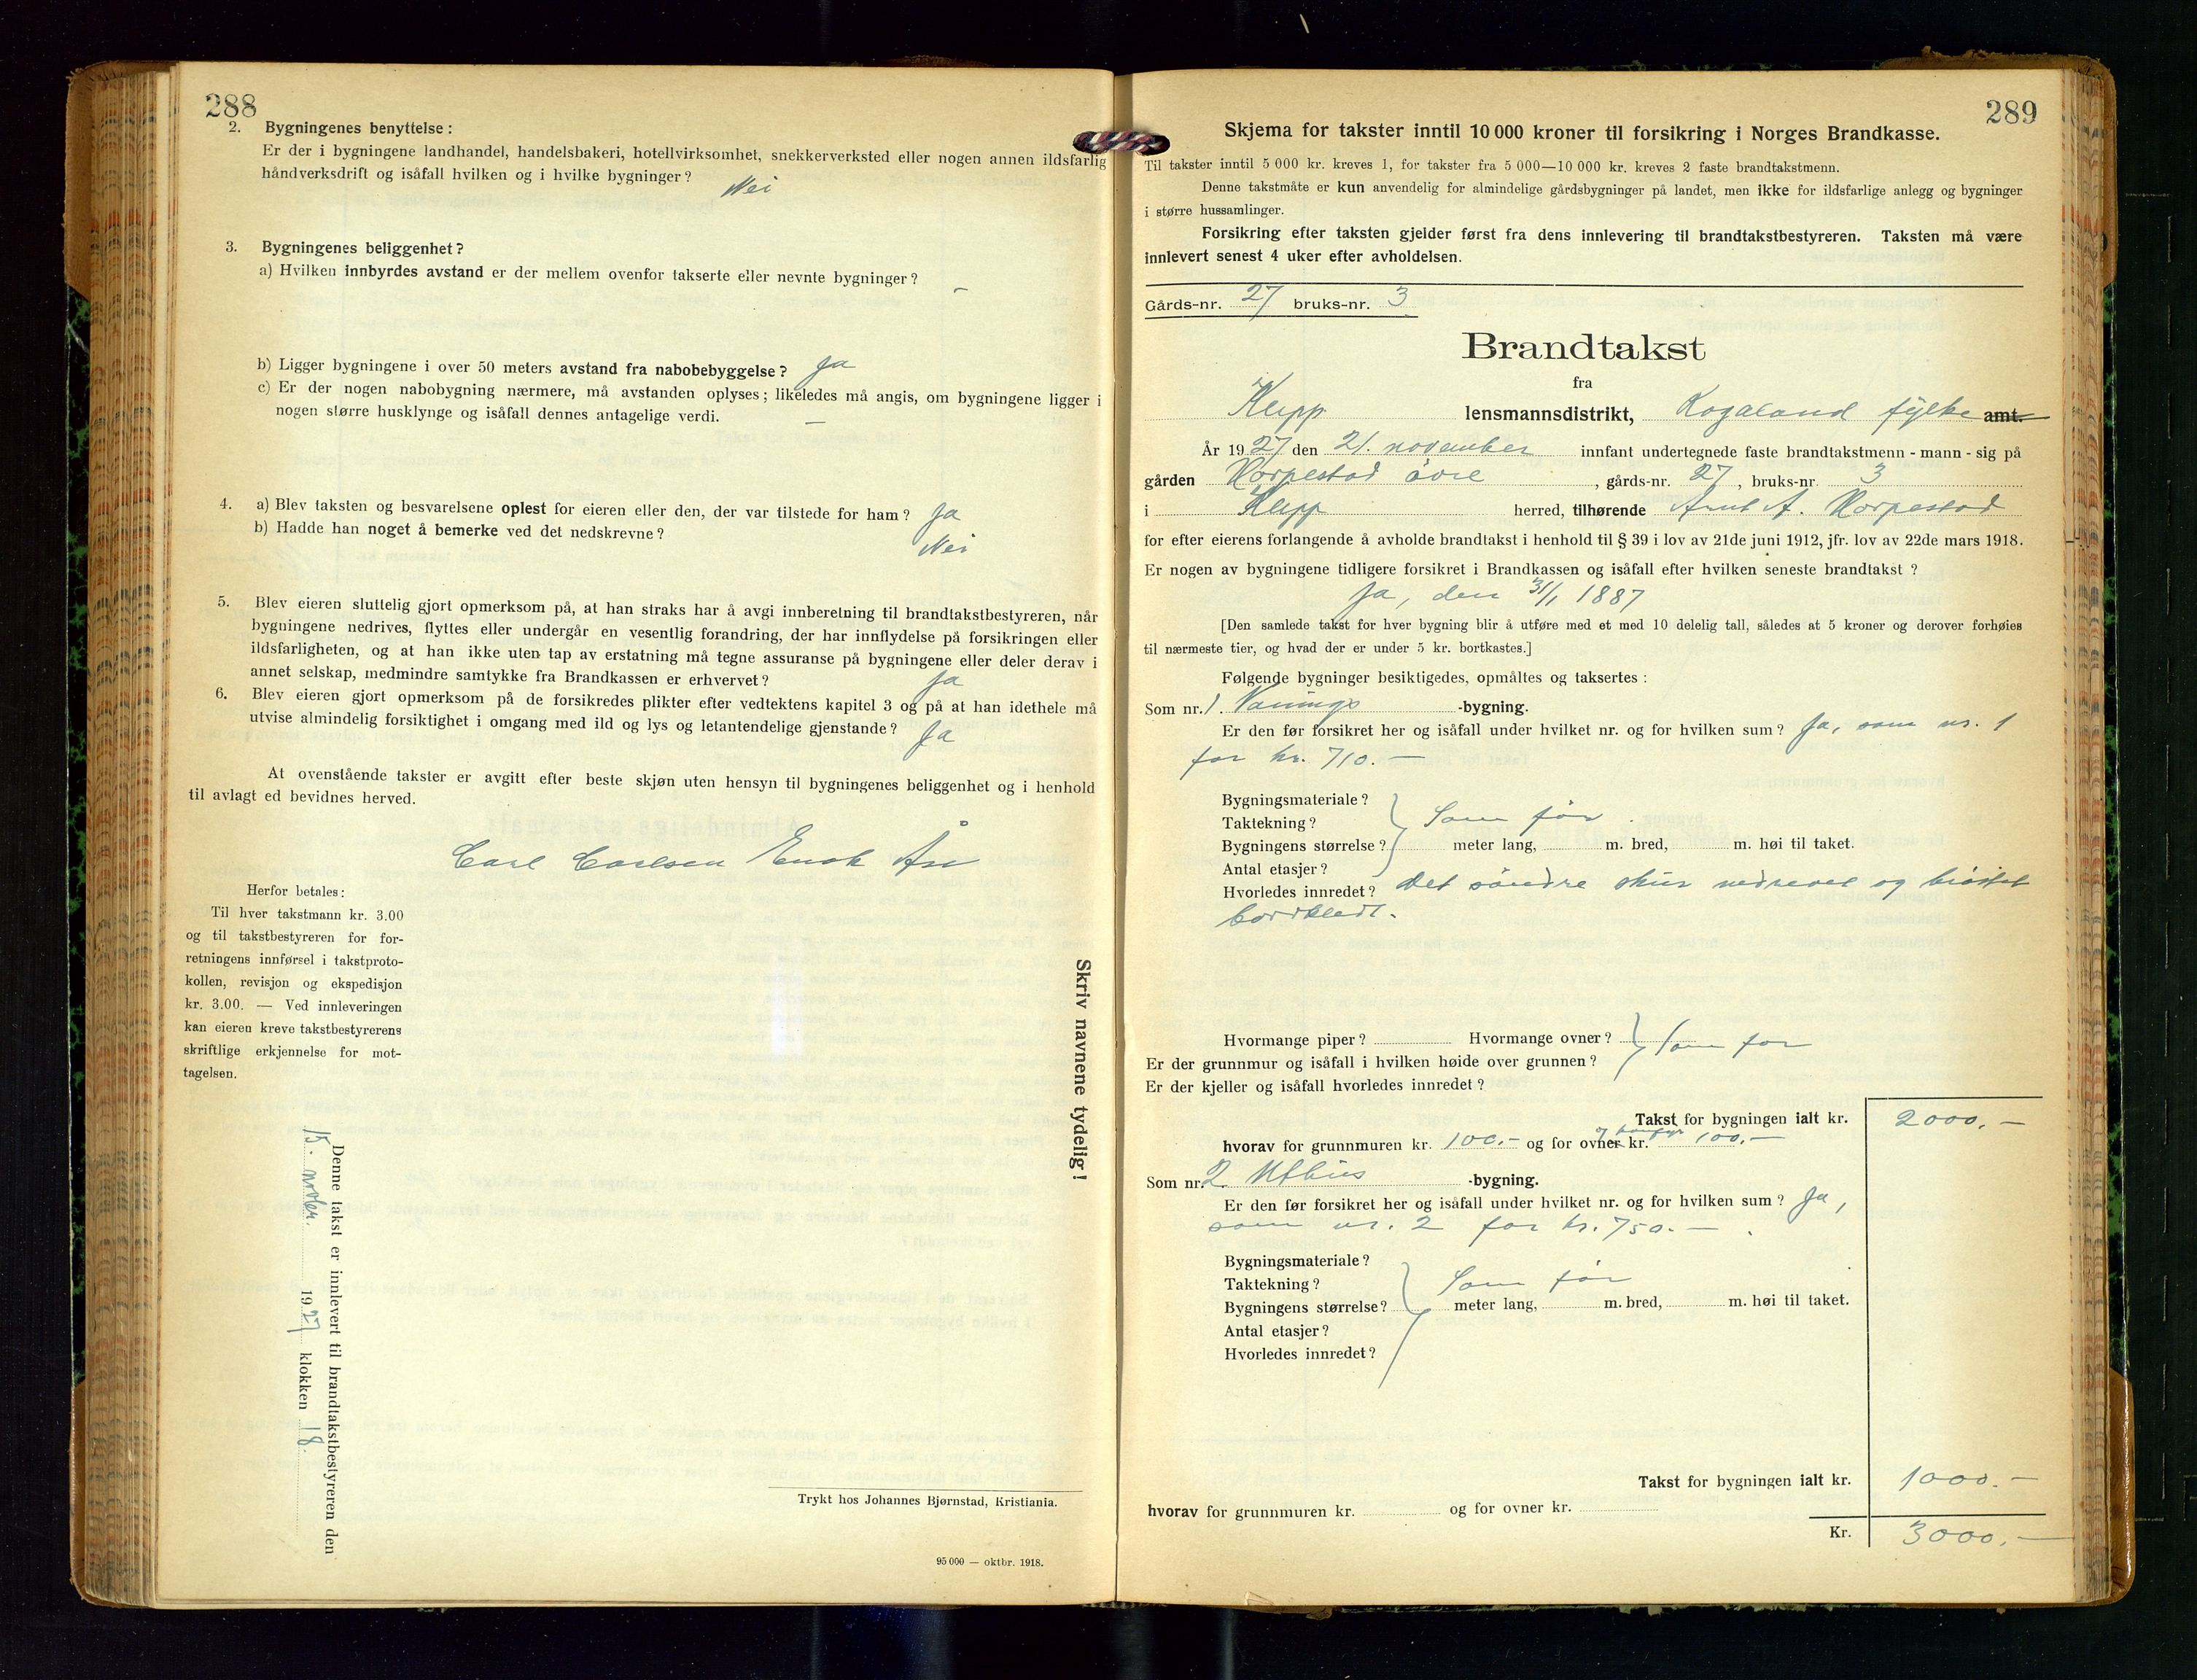 288
2. Bygningenes benyttelse:
Er der i bygningene landhandel, handelsbakeri, hotellvirksomhet, snekkerverksted eller nogen annen ildsfarlig
håndverksdrift og isåfall hvilken og i hvilke bygninger? Nei
3. Bygningenes beliggenhet?
a) Hvilken innbyrdes avstand er der mellem ovenfor takserte eller nevnte bygninger? –
b) Ligger bygningene i over 50 meters avstand fra nabobebyggelse? Ja
c) Er der nogen nabobygning nærmere, må avstanden oplyses; likeledes må angis, om bygningene ligger i
nogen større husklynge og isåfall dennes antagelige verdi. –
4. a) Blev taksten og besvarelsene oplest for eieren eller den, der var tilstede for ham? Ja
b) Hadde han noget å bemerke ved det nedskrevne? Nei
5. Blev eieren sluttelig gjort opmerksom på, at han straks har å avgi innberetning til brandtakstbestyreren, når
bygningene nedrives, flyttes eller undergår en vesentlig forandring, der har innflydelse på forsikringen eller
ildsfarligheten, og at han ikke uten tap av erstatning må tegne assuranse på bygningene eller deler derav i
annet selskap, medmindre samtykke fra Brandkassen er erhvervet? Ja
6. Blev eieren gjort opmerksom på de forsikredes plikter efter vedtektens kapitel 3 og på at han idethele må
utvise almindelig forsiktighet i omgang med ild og lys og letantendelige gjenstande? Ja
At ovenstående takster er avgitt efter beste skjøn uten hensyn til bygningenes beliggenhet og i henhold
til avlagt ed bevidnes herved.
Carl Carlsen Enok Åse
Herfor betales:
Til hver takstmann kr. 3.00
og til takstbestyreren for for-
retningens innførsel i takstproto-
kollen, revisjon og ekspedisjon
kr. 3.00. — Ved innleveringen
kan eieren kreve takstbestyrerens
skriftlige erkjennelse for mot-
tagelsen.
Skriv navnene tydelig!
Denne takst er innlevert til brandtakstbestyreren den
15. novbr. 1927 klokken 18.
Trykt hos Johannes Bjørnstad, Kristiania.
95 000 — oktbr. 1918.
289
Skjema for takster inntil 10 000 kroner til forsikring i Norges Brandkasse.
Til takster inntil 5 000 kr. kreves 1, for takster fra 5 000—10 000 kr. kreves 2 faste brandtakstmenn.
Denne takstmåte er kun anvendelig for almindelige gårdsbygninger på landet, men ikke for ildsfarlige anlegg og bygninger
i større hussamlinger.
Forsikring efter taksten gjelder først fra dens innlevering til brandtakstbestyreren. Taksten må være
innlevert senest 4 uker efter avholdelsen.
Gårds-nr. 27 bruks-nr. 3
Brandtakst
fra
Klepp lensmannsdistrikt, Rogaland fylke amt.
År 1927 den 21. november innfant undertegnede faste brandtakstmenn - mann - sig på
gården Horpestad övre, gårds-nr. 27, bruks-nr. 3
i Klepp herred, tilhørende Arnt A. Horpestad
for efter eierens forlangende å avholde brandtakst i henhold til § 39 i lov av 21de juni 1912, jfr. lov av 22de mars 1918.
Er nogen av bygningene tidligere forsikret i Brandkassen og isåfall efter hvilken seneste brandtakst?
Ja, den 31/1 1887
[Den samlede takst for hver bygning blir å utføre med et med 10 delelig tall, således at 5 kroner og derover forhøies
til nærmeste tier, og hvad der er under 5 kr. bortkastes.]
Følgende bygninger besiktigedes, opmåltes og taksertes:
Som nr. 1. Vånings -bygning.
Er den før forsikret her og isåfall under hvilket nr. og for hvilken sum? Ja, som nr. 1
for kr. 710.–
Bygningsmateriale?
Taktekning? Som før
Bygningens størrelse? meter lang, m. bred, m. høi til taket.
Antal etasjer?
Hvorledes innredet? Det söndre skur nedrevet og bröstet
bordkledt.
Hvormange piper? Hvormange ovner? Som før
Er der grunnmur og isåfall i hvilken høide over grunnen?
Er der kjeller og isåfall hvorledes innredet?
Takst for bygningen ialt kr. 2000.–
hvorav for grunnmuren kr. 100.– og for ovner og komfyr kr. 100.–
Som nr. 2. Uthus -bygning.
Er den før forsikret her og isåfall under hvilket nr. og for hvilken sum? Ja,
som nr. 2 for kr. 750.–
Bygningsmateriale?
Taktekning? Som før
Bygningens størrelse? meter lang, m. bred, m. høi til taket.
Antal etasjer?
Hvorledes innredet?
Takst for bygningen ialt kr. 1000.–
hvorav for grunnmuren kr. og for ovner kr.
Kr. 3000.–